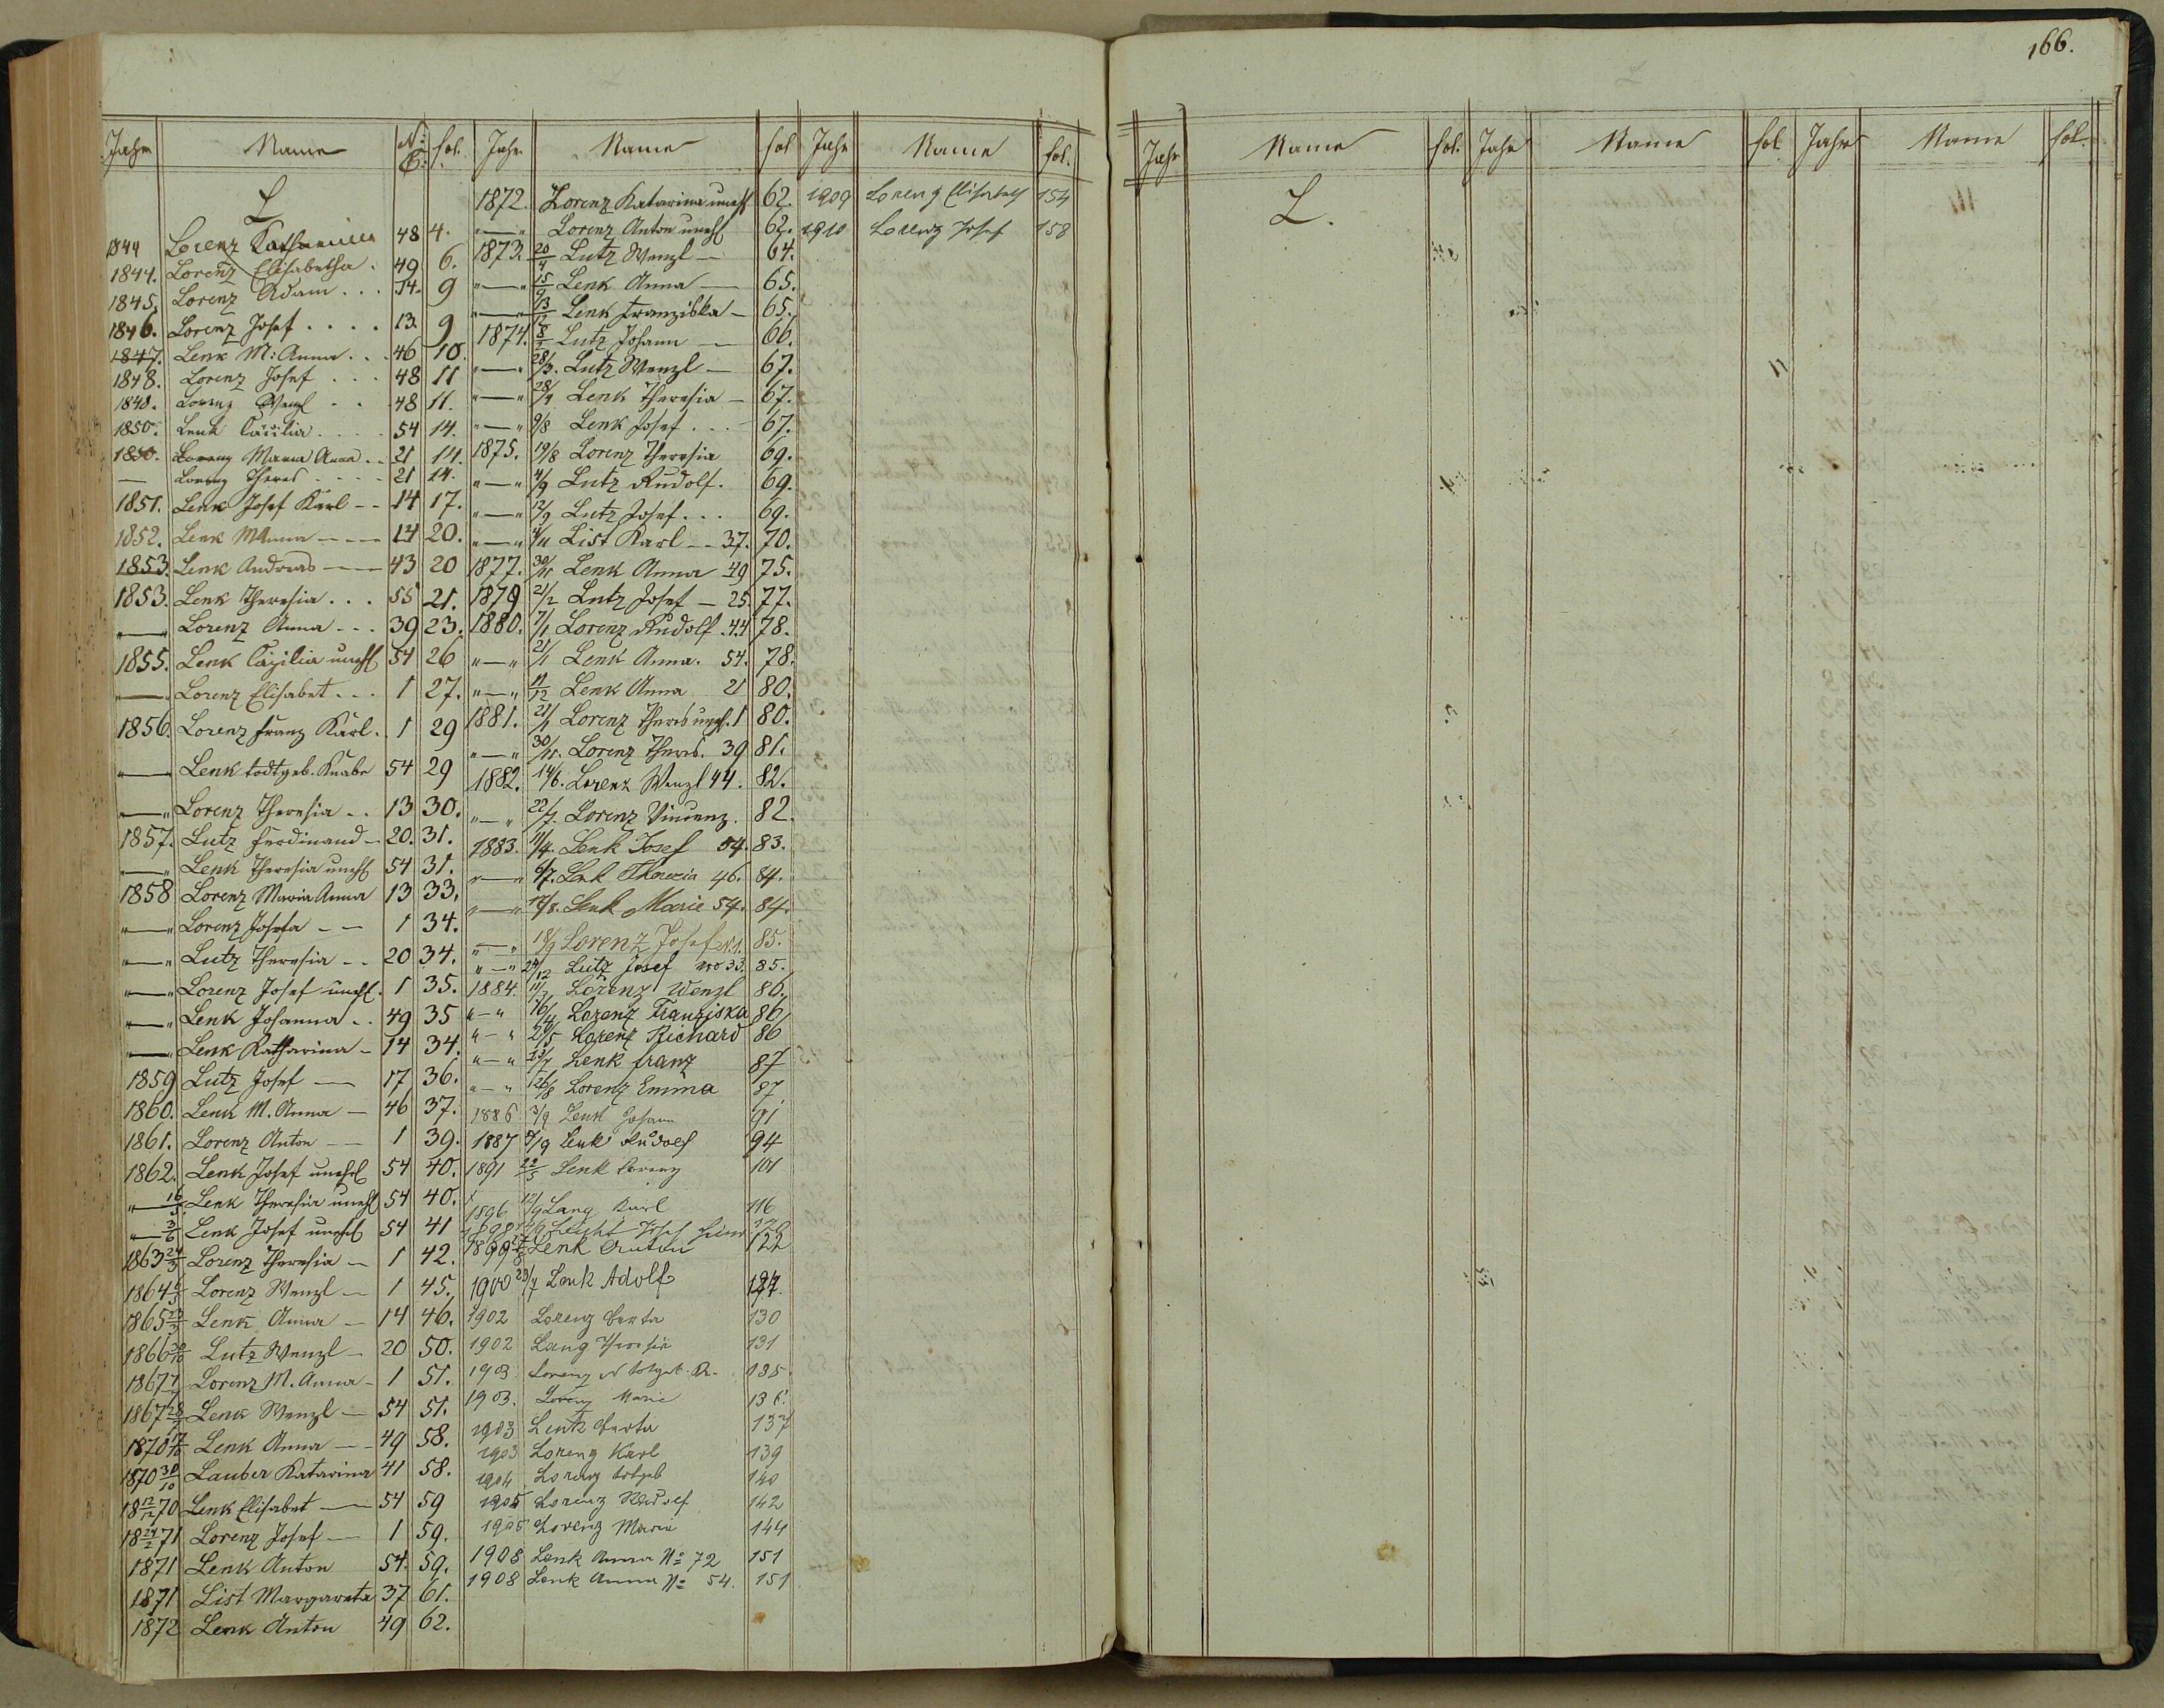 166.
Jahr Name N: C: fol.
L
1844 Lorenz Katharina 48 4.
1844. Lorenz Elisabetha. 49 6.
1845. Lorenz Adam... 14. 9
1846. Lorenz Josef.... 13. 9
1847. Lenk M: Anna... 46 10.
1848. Lorenz Josef... 48 11
1848. Lorenz Wenzl.. 48 11.
1850. Lenk Cäcilia.... 54 14.
1850. Lorenz Maria Anna.. 21 14.
— Lorenz Theres.... 21 14.
1851. Lenk Josef Karl -- 14 17.
1852. Lenk MAnna --- 14 20.
1853. Lenk Andreas — 43 20
1853. Lenk Theresia... 55 21.
"—" Lorenz Anna --- 39 23.
1855. Lenk Cäzilia unehl 54 26
"—" Lorenz Elisabet... 1 27.
1856. Lorenz Franz Karl. 1 29
"—" Lenk todtgeb. Knabe 54 29
"—" Lorenz Theresia.. 13 30.
1857. Lutz Ferdinand - 20. 31.
"—" Lenk Theresia unehl 54 31.
1858 Lorenz Maria Anna 13 33.
"—" Lorenz Josefa -- 1 34.
"—" Lutz Theresia -- 20 34.
"—" Lorenz Josef unehl. 1 35.
"—" Lenk Johanna.. 49 35
"—" Lenk Katharina - 14 34.
1859 Lutz Josef — 17 36.
1860. Lenk M. Anna — 46 37.
1861. Lorenz Anton -- 1 39.
1862. Lenk Josef unehl 54 40.
"— 16/3 Lenk Theresia unehl 54 40.
"— 3/6 Lenk Josef unehl 54 41
1863 24/3 Lorenz Theresia — 1 42.
1864 Lorenz Wenzl — 1 45.
1865 Lenk Anna — 14 46.
1866 Lutz Wenzl — 20 50.
1867 Lorenz M. Anna - 1 51.
1867 Lenk Wenzl — 54 51.
1870 17/10 Lenk Anna -- 49 58.
1870 30/10 Lauber Katarina 41 58.
18 12/12 70 Lenk Elisabet — 54 59
18 24/2 71 Lorenz Josef — 1 59.
1871 Lenk Anton 54. 59.
1871 List Margareta 37 61.
1872 Lenk Anton 49 62.
Jahr Name fol
1872. Lorenz Katarina unehl 62.
"—" Lorenz Anton unehl 62.
1873. 20/4 Lutz Wenzl — 64.
"—" 15/9 Lenk Anna — 65.
"—" 13/12 Lenk Franziska — 65.
1874. 8/2 Lutz Johann — 66.
"—" 28/3. Lutz Wenzl — 67.
"—" 28/4 Lenk Theresia — 67.
"—" 9/8 Lenk Josef... 67.
1875. 19/8 Lorenz Theresia 69.
"—" 4/9 Lutz Rudolf. 69.
"—" 12/9 Lutz Josef... 69.
"—" List Karl -- 37. 70.
1877. Lenk Anna 49 75.
1879 21/2 Lutz Josef — 25. 77.
1880. 7/1 Lorenz Rudolf. 44 78.
"—" 21/1 Lenk Anna. 54. 78.
"—" Lenk Anna 21 80.
1881. 21/1 Lorenz Theres unehl. 1 80.
"—" Lorenz Theres. 39 81.
1882. 14/6. Lorenz Wenzl 44. 82.
"—" 22/7. Lorenz Vinzenz. 82.
1883. 11/4. Lenk Josef 54. 83.
"—" Lenk Theresia 46. 84.
"—" Lenk Marie 54. 84.
"—" 18/9 Lorenz Josef N. 1. 85.
"—" 24/12 Lutz Josef No 33. 85.
1884. Lorenz Wenzl 86.
"—" 16/4 Lorenz Franziska 86
"—" Lorenz Richard 86
"—" Lenk Franz 87
"—" 12/8 Lorenz Emma 87
1886 3/9 Lenk Johann 91
1887 Lenk Rudolf 94
1891 Lenk Lorenz 101
1896 12/9 Lang Karl 116
1898 Josef 120
1899 Lenk Anton 122
1900 23/7 Lenk Adolf 127.
1902 Lorenz Berta 130
1902 Lang Theresia 131
1903 Lorenz totgeb. 135.
1903. Lorenz Marie 136.
1903 Lenk Berta 137
1903 Lorenz Karl 139
1904 Lorenz totgeb 140
1905 Lorenz Rudolf 142
1905 Lorenz Maria 144
1908 Lenk Anna No 72 151
1908 Lenk Anna No 54. 151
Jahr Name fol.
1909 Lorenz Elisabeth 154
1910 Lorenz Josef 158
Jahr Name fol. Jahr Name fol Jahr Name fol.
L.